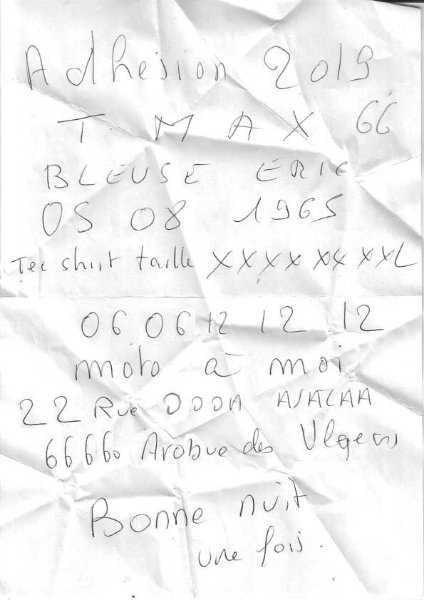 Adhésion 2019
T MAX 66
BLEUSE ERIC
05 08 1965
Tee shirt taille XXXX XX XXL
06 06 12 12 12
moto à moi
22 Rue DODA
66660 des
Bonne nuit
une fois.